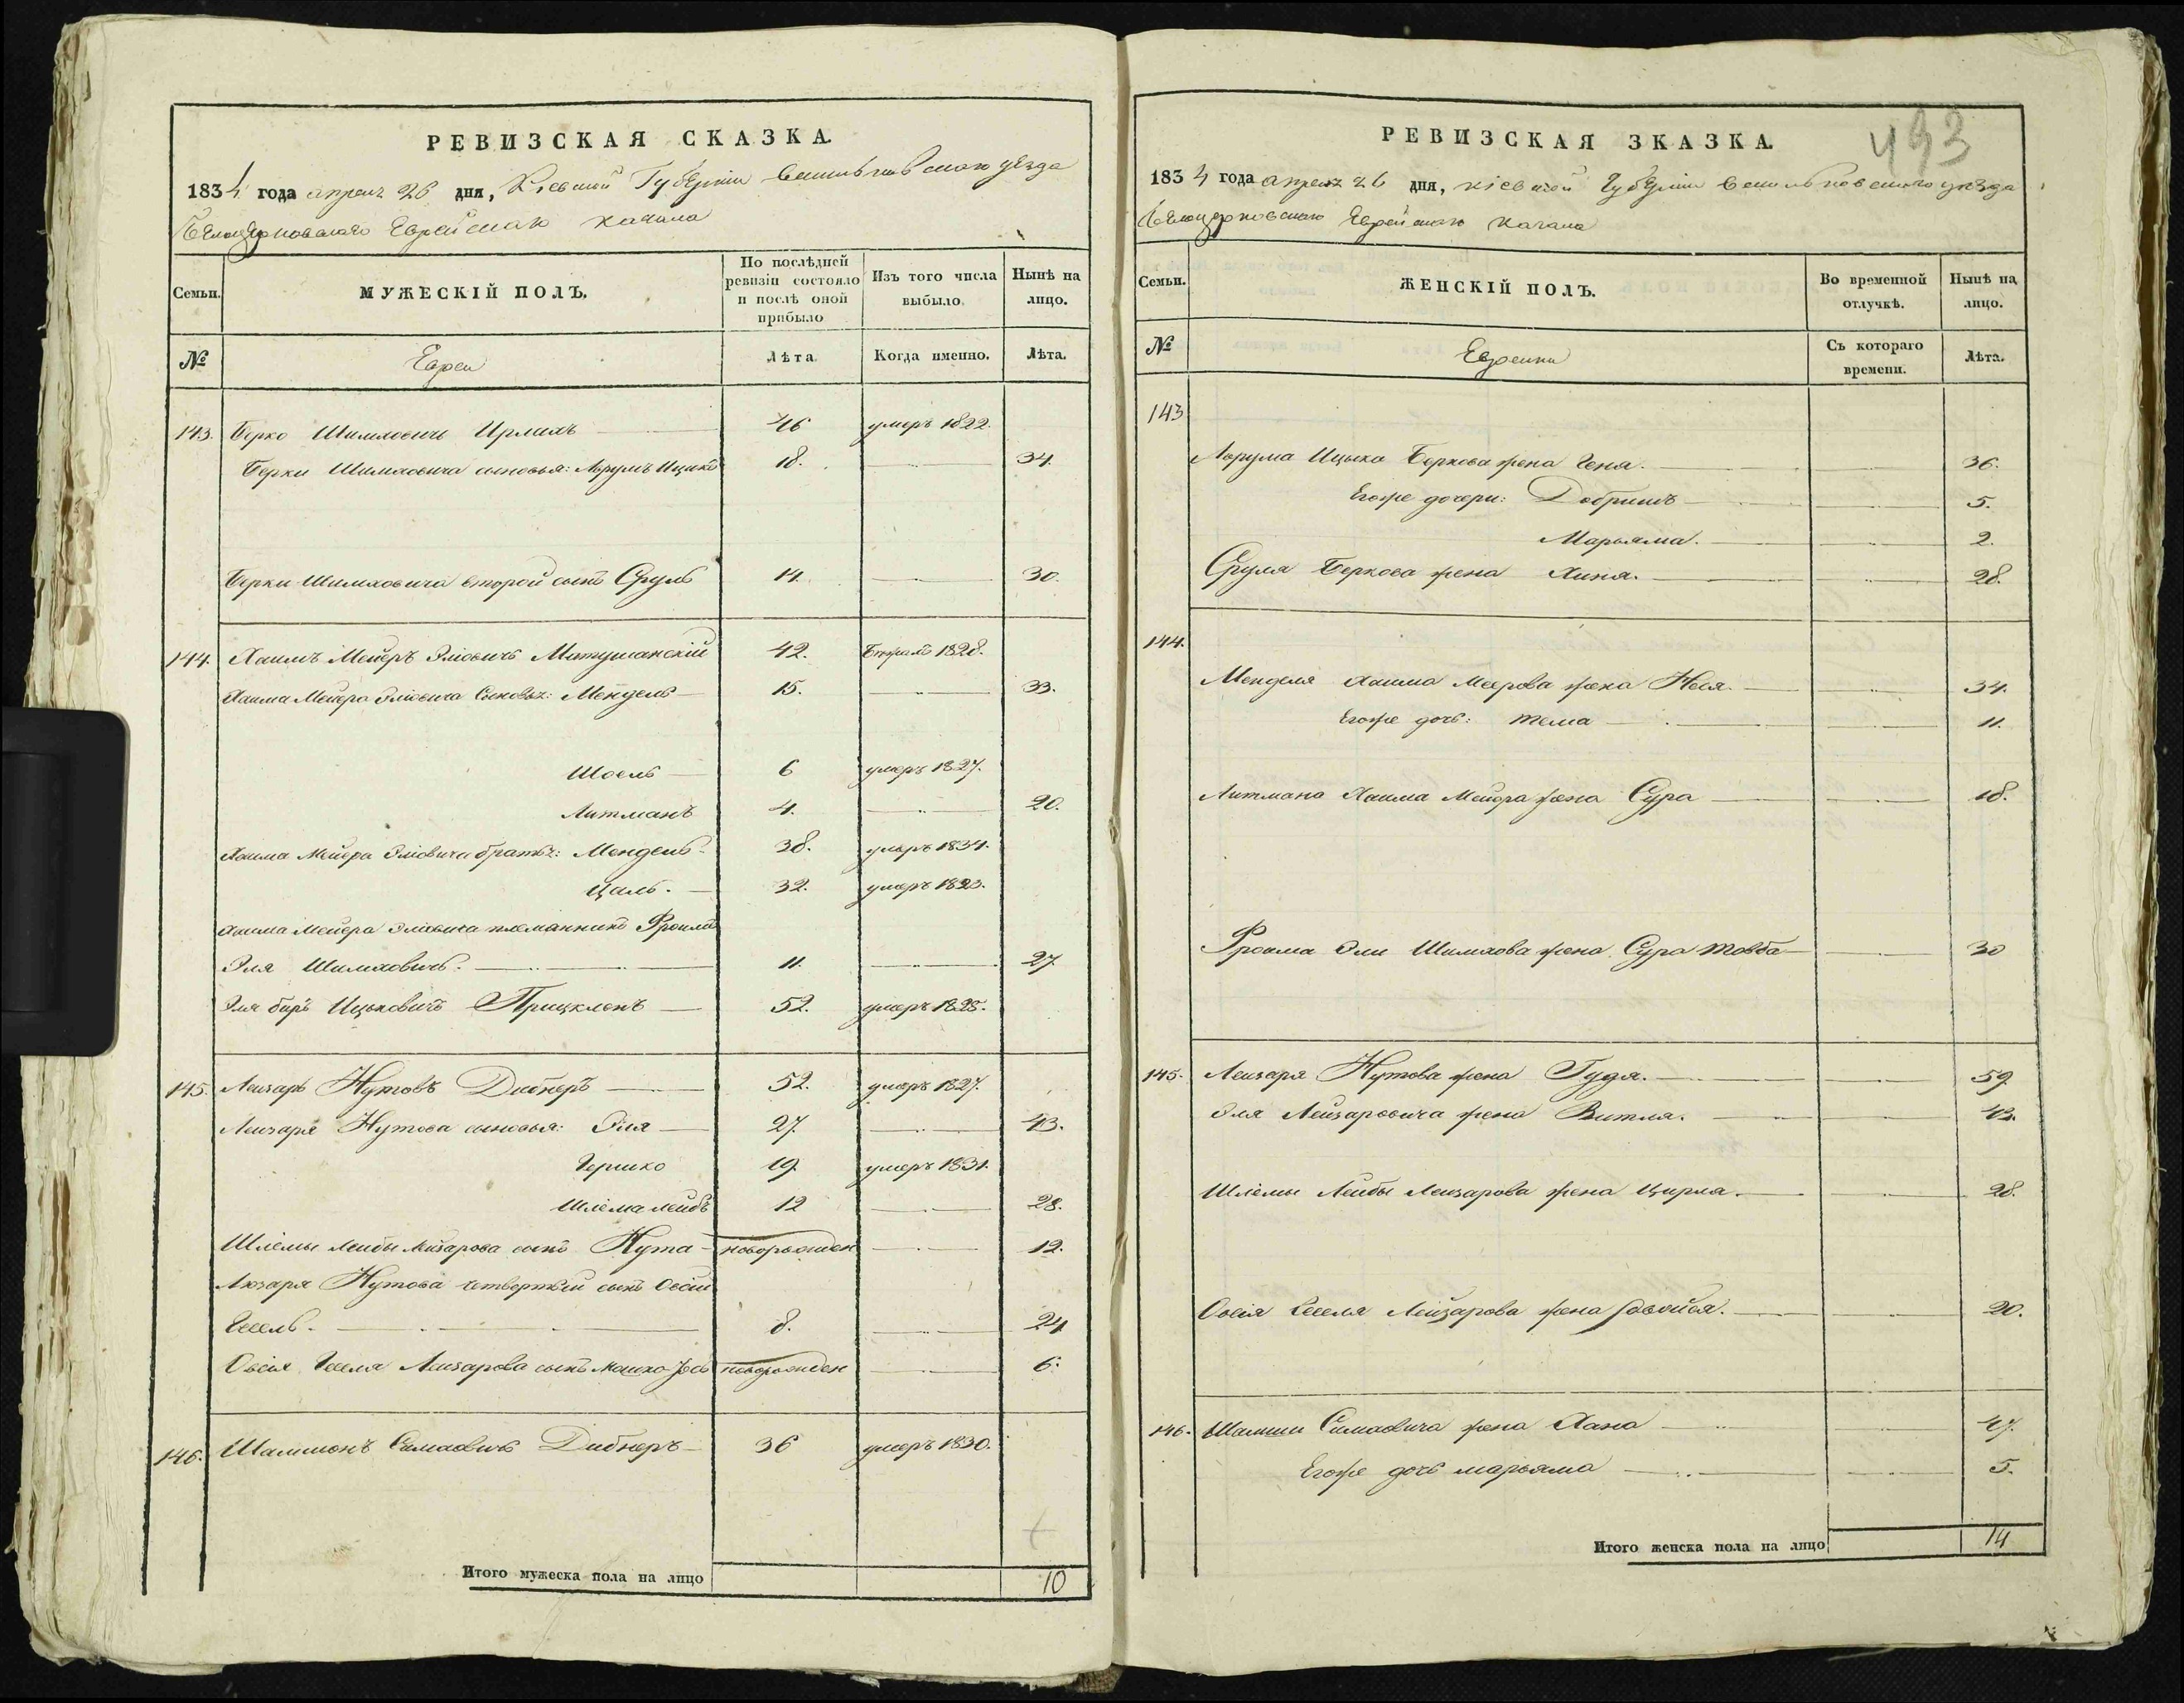 РЕВИЗСКАЯ СКАЗКА.
1834 года апреля 26 дня, Кіевской Губерніи Васильковскаго уезда
Белоцерковскаго Еврейскаго Кагала
Семьи. МУЖЕСКІЙ ПОЛЪ. По послѣдней ревизіи состояло и послѣ оной прибыло Изъ того числа выбыло. Нынѣ на лицо.
№ Евреи Лѣта. Когда именно. Лѣта.
143. Берко Шимховичъ Ирлихъ 46 умеръ 1822
Берки Шимховича сыновья: Аврумъ Ицико 18. 34.
Берки Шимховича второй сынъ Сруль 14. 30.
144. Хаимъ Мейеръ Эліовичъ Матушанскій 42. 1828.
Хаима Мейера Эліовича Сыновья: Мендель 15. 33.
Шоель 6 умеръ 1827.
Литманъ 4. 20.
Хаима Мейера Эліовича братья: Мендель 38. умеръ 1834.
Цаль. 32. умеръ 1823.
Хаима Мейера Эліовича племянникъ Фроимъ
Эля Шимховичъ. 11. 27
Эля беръ Ицковичъ 52. умеръ 1825.
145. Лейзаръ Нутовъ Дибнеръ 52. умеръ 1827.
Лейзаря Нутова сыновья: Эля 27. 43.
Гершко 19. умеръ 1831.
Шлема лейбъ 12 28.
Шлемы Лейбы Лейзарова сынъ Нута новорожден 12.
Лейзаря Нутова четвертый сынъ Овсій
Іосель. 8. 24
Овсія Іоселя Лейзарова сынъ Мошко новорожден 6.
146. Шамшонъ Симховичъ Дибнеръ 36 умеръ 1830.
Итого мужеска пола на лицо 10
493
РЕВИЗСКАЯ ЗКАЗКА.
1834 года апреля 26 дня, Кіевской Губерніи Васильковскаго уезда
Белоцерковскаго Еврейскаго Кагала
Семьи. ЖЕНСКІЙ ПОЛЪ. Во временной отлучкѣ. Нынѣ на лицо.
№ Еврейки Съ котораго времени. Лѣта.
143
Аврума Ицыка Беркова жена Геня. 36.
Егоже дочери: Добришъ 5.
Марьяма. 2.
Сруля Беркова жена Хиня. 28.
144.
Менделя Хаима Меерова жена Нися. 34.
Егоже дочь: Тема 11.
Литмана Хаима Мейера жена Сура 18.
Фроима Эли Шимхова жена Сура Товба 30
145. Лейзаря Нутова жена Гудя. 59
Эля Лейзаровича жена Витля. 43.
Шлемы Лейбы Лейзарова жена Цирля. 28.
Овсія Іоселя Лейзарова жена 20.
146. Шамши Симховича жена Хана 47.
Егоже дочь марьяма 5.
Итого женска пола на лицо 14